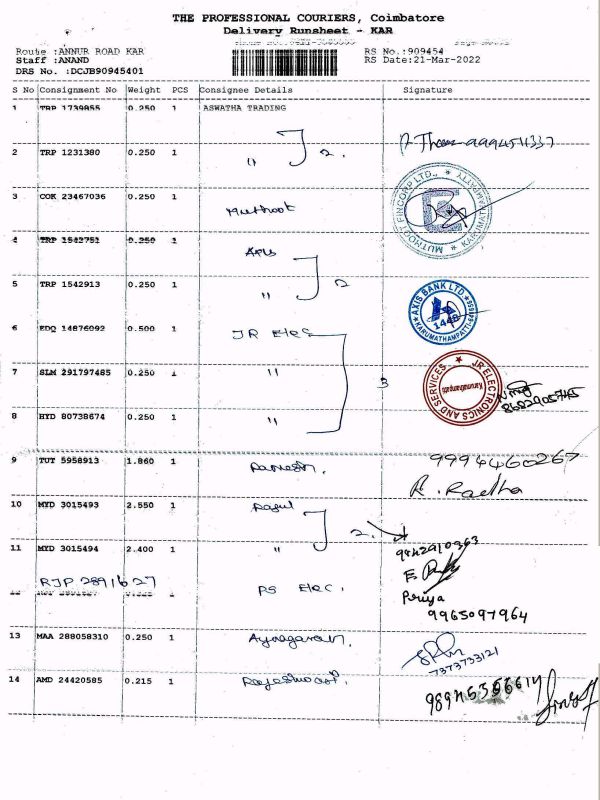 THE PROFESSIONAL COURIERS, Coimbatore
Delivery Runsheet - KAR
Route :ANNUR ROAD KAR RS No.:909454
Staff :ANAND RS Date:21-Mar-2022
DRS No. :DCJB90945401
S No Consignment No Weight PCS Consignee Details Signature
1 TRP 1739855 0.250 1 ASWATHA TRADING
9994511337
2 TRP 1231380 0.250 1 " 2.
3 COK 23467036 0.250 1 Muthoot
MUTHOOT FINCORP LTD.,
4 TRP 1542751 0.250 1 Axis
5 TRP 1542913 0.250 1 " 2
AXIS BANK LTD
1448
KARUMATHAMPATTI
6 EDQ 14876092 0.500 1 JR Elec
7 SLM 291797485 0.250 1 " 3
JR ELECTRONICS AND SERVICES
Karumathampatti
8682905745
8 HYD 80738674 0.250 1 "
9 TUT 5958913 1.860 1 Ramesh.
9994460267
R. Radha
10 MYD 3015493 2.550 1 Ragul
2.
11 MYD 3015494 2.400 1 "
9842910363
RJP 2891627
12 1 PS Elec.
Priya
9965097964
13 MAA 288058310 0.250 1
7373733121
14 AMD 24420585 0.215 1 Rajeshwari.